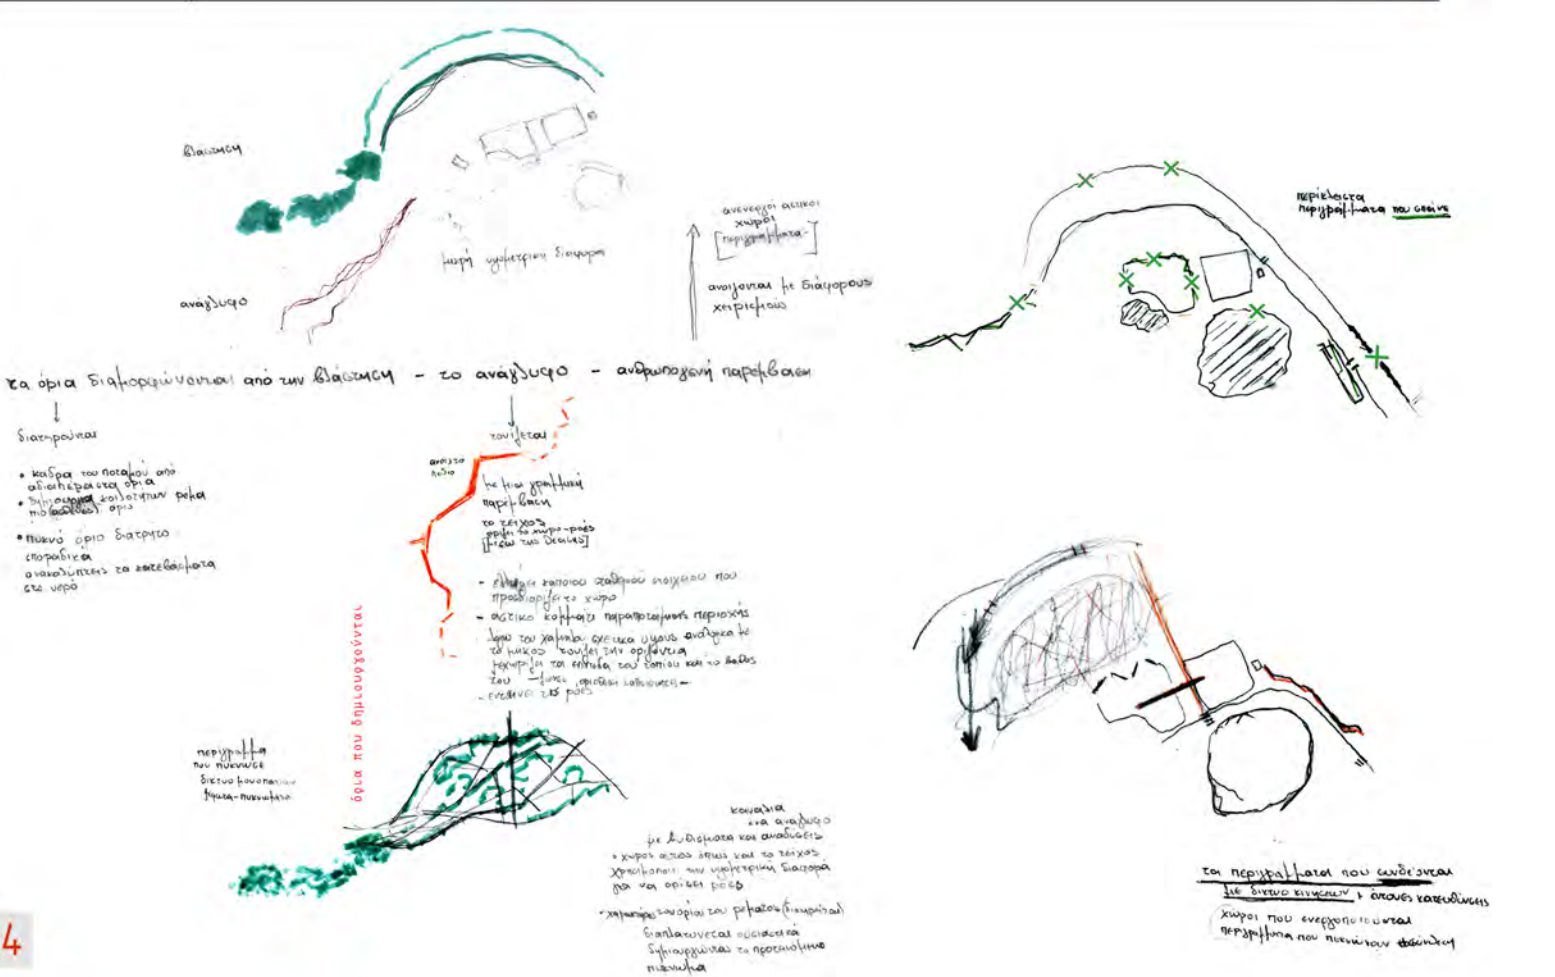 βλάστηση
ανάγλυφο
μικρή υψομετρική διαφορά
ανενεργοί αστικοί
χώροι
[περιγράμματα-]
ανοίγονται με διάφορους
χειρισμούς
περίκλειστα
περιγράμματα που σπάνε
τα όρια διαμορφώνονται από την βλάστηση - το ανάγλυφο - ανθρωπογενή παρέμβαση
διατηρούνται
• καδρα του ποταμού από
αδιαπέραστα όρια
• δημιουργία κοιλοτήτων ρέμα
πιο (ασαθές) όριο
• πυκνό όριο διάτρητο
σποραδικά
ανακαλύπτεις τα κατεβάσματα
στο νερό
τονίζεται
ανοιχτο
πεδιο
με μια γραμμική
παρέμβαση
το τείχος
ορίζει το χώρο-ροές
[μέσω της θεασης]
- έλλειψει κάποιου σταθερού στοιχείου που
προσδιορίζει το χώρο
- αστικο κομμάτι παραποτάμιας περιοχής
λόγω του χαμηλού σχετικά ύψους ανάλογα με
το μήκος τονίζει την οριζόντια
ξεχωρίζει τα επίπεδα του τοπίου και το βάθος
του
- εντείνει τις ροές
όρια που δημιουργούνται
περίγραμμα
που πυκνωσε
δίκτυο μονοπατιών
κανάλια
ένα ανάγλυφο
με βυθίσματα και αναδύσεις
• χώρος αυτός όπως και το τείχος
χρησιμοποιεί την υψομετρική διαφορά
για να ορίσει ροές
το όριο του ρεματος (διατηρείται)
διαπλατώνεται ουσιαστικά
δημιουργώντας το προτεινόμενο
πύκνωμα
τα περιγράμματα που συνδέονται
με δίκτυο κινήσεων + έντονες κατευθύνσεις
χώροι που ενεργοποιούνται
περίγραμμα που πυκνώνουν
4